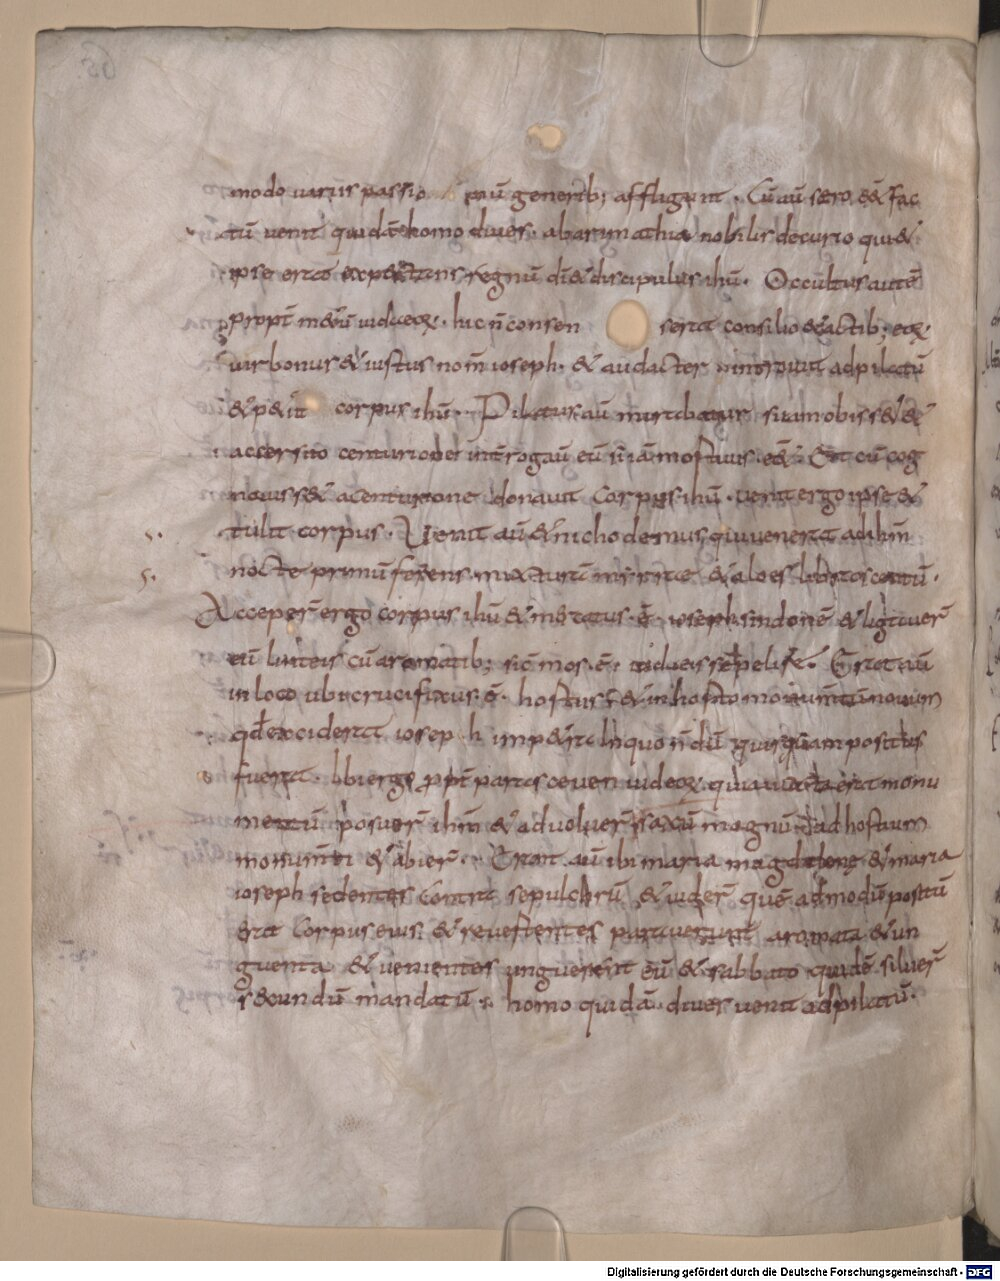 modo variis passio nū generib; affligunt. Cū aū sero eē fac
tū venit quidā homo dives. ab arimathia nobilis decurio qui &
ipse erat expectans regnū dī & discipulus ihū. Occultus autē
propt m&ū iudeoꝝ. hic n̄ consen serat consilio & actib; eoꝝ.
vir bonus & iustus nom̄ ioseph. & audacter introivit ad pilatū
& petiit corpus ihū. Pilatus aū mirabatur si iam obiss& &
accersito centurione int̄rogaū eū si iā mortuus eē. Et cū cog
noviss& a centurione donavit corpus ihū. venit ergo ipse &
tulit corpus. Venit aū & nichodemus qui venerat ad ihm̄
nocte primū ferens mixturā mirrae & aloes libras centū.
Acceper̄ ergo corpus ihū & ioseph sindone & ligaver̄
eū linteis cū aromatib; sic mos ē iudeis sepelire. Erat aū
in loco ubi crucifixus ē. hortus & in horto monum̄tū novum
qđ exciderat ioseph in petra in quo n̄dū quisquam positus
fuerat. Ibi ergo ꝓpt̄ parasceven iudeoꝝ quia iuxta erat monu
mentū posuer̄ ihm̄ & advolver̄ saxū magnū ad hostium
monum̄ti & abier̄. Erant aū ibi maria magdalene & maria
ioseph sedentes contra sepulchrū & vider̄ quē admodū positū
erat corpus eius & revertentes paraverunt aromata & un
guenta & venientes unguerent eū & sabbato quidē siluer̄
secundū mandatū. homo quidā dives venit ad pilatū.
Digitalisierung gefördert durch die Deutsche Forschungsgemeinschaft - DFG